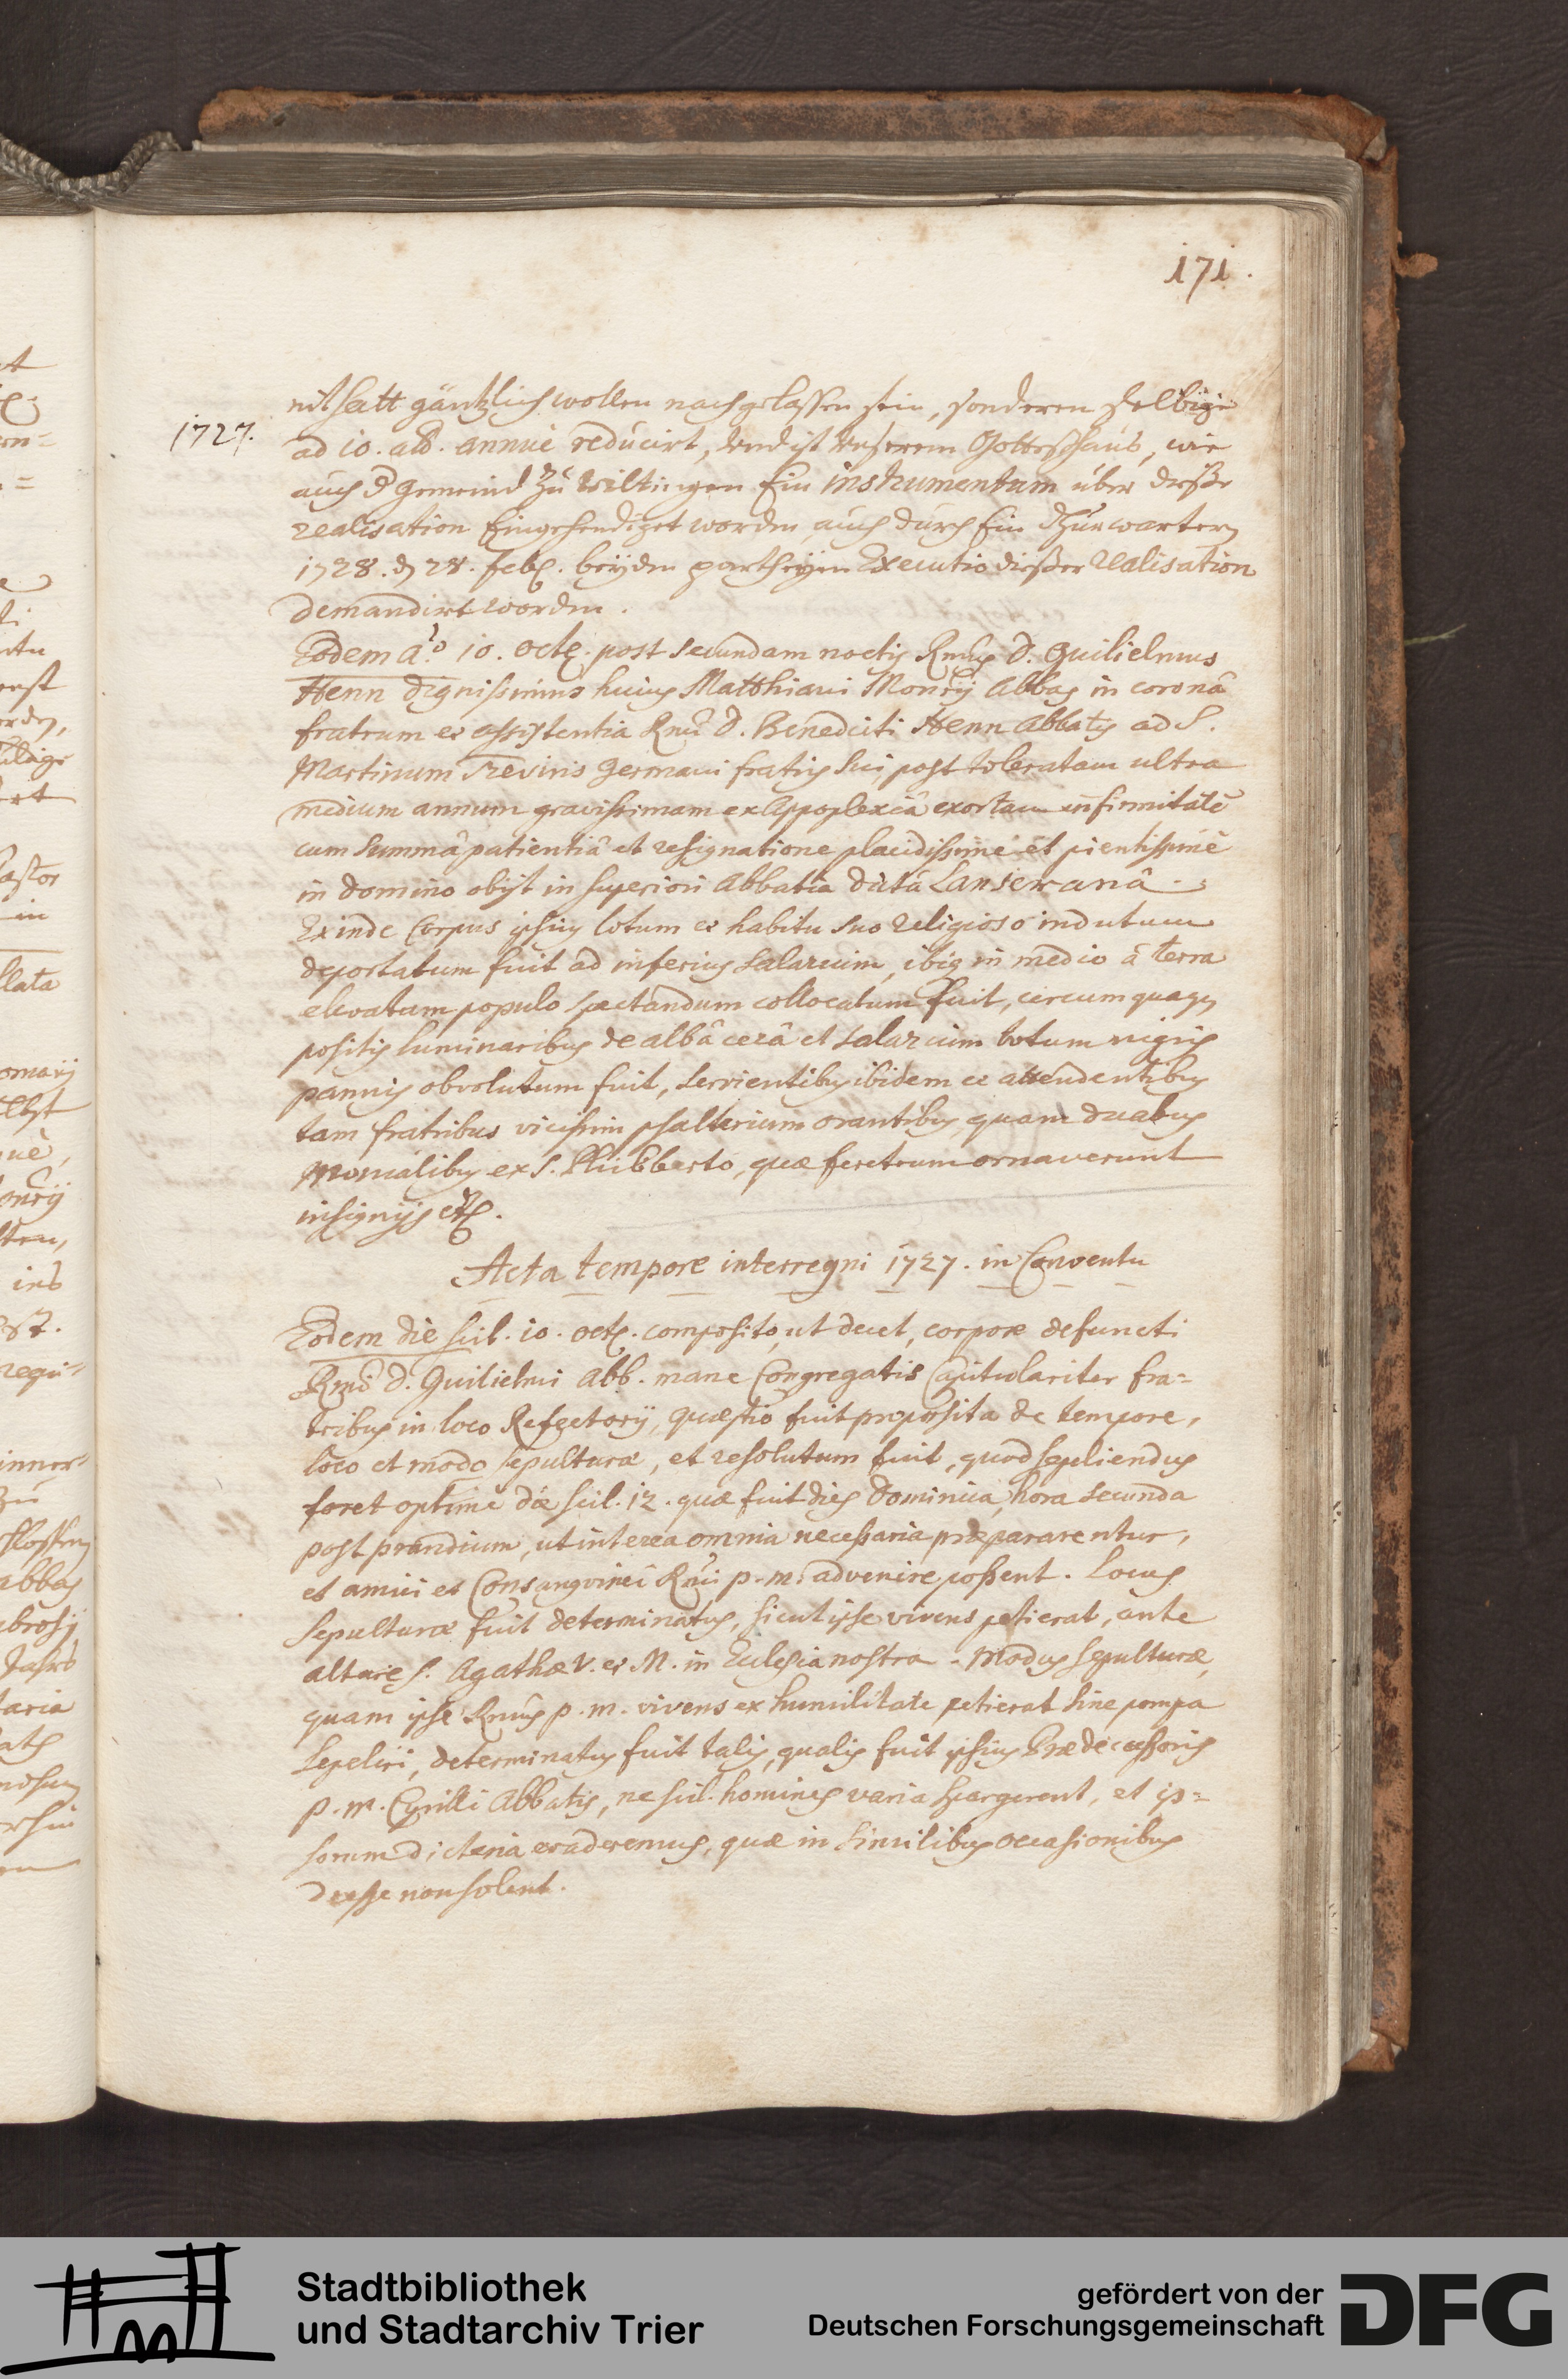 171.
1727.
nit hatt gäntzlich wollen nachgelassen sein, sonderen selbige
ad 10. alb. annue reducirt, undt ist unserem Gotteshaus, wie
auch d gemeind zu Wiltingen Ein instrumentum über dieße
realisation Eingehendiget worden, auch durch Ein
1728. d 28. feb. beyden partheyen Executio dießer realisation
demandirt worden.
Eodem Aº 10. octb. post secundam noctis Rmus D. Guilielmus
Henn dignissimus huius Matthiani Monrij Abbas in coronâ
fratrum et assistentia Rmi D. Benedicti Henn Abbatis ad S.
Martinum Treviris germani fratris sui, post toleratam ultra
medium annum gravissimam ex Appoplexiâ exortam infirmitatē
cum summâ patientiâ et resignatione placidissime et pientissimè
in domino obijt in superiori Abbatia dictâ Lanseranâ.
Exinde Corpus ipsius lotum et habitu suo religioso indutum
deportatum fuit ad inferius salarium, ibiq in medio â terra
elevatam populo spectandum collocatum fuit, circumquaqz
positis luminaribus de albâ cerâ et salarium totum nigris
pannis obvolutum fuit, servientibus ibidem et attendentibus
tam fratribus vicissim psalterium orantibus, quam duabus
Monialibus ex S. Hubberto, quæ feretrum ornaverunt
insignijs etc.
Acta tempore interregni 1727. in Conventu
Eodem die scil. 10. octb. composito, ut decet, corpore defuncti
Rmi D. Guilielmi Abb. mane Congregatis Capitulariter fra=
tribus in loco Refectorij, quæstio fuit proposita de tempore,
loco et modo sepulturæ, et resolutum fuit, quod sepeliendus
foret optime die scil. 12. quæ fuit dies Dominica, hora secunda
post prandium, ut interea omnia necessaria præpararentur,
et amici et Consangvinei Rmi p. m. advenire possent. Locus
sepulturæ fuit determinatus, sicut ipse vivens petierat, ante
altare S. Agathæ V. et M. in Eclesia nostra. Modus sepulturæ,
quam ipse Rmus p. m. vivens ex humilitate petierat sine pompa
sepeliri, determinatus fuit talis, qualis fuit ipsius Prædecessoris
p. m. Cyrilli Abbatis, ne scil. homines varia spargerent, et ip=
sorum dicteria evaderemus, quæ in similibus occasionibus
deesse non solent.
Stadtbibliothek
und Stadtarchiv Trier
gefördert von der
Deutschen Forschungsgemeinschaft
DFG